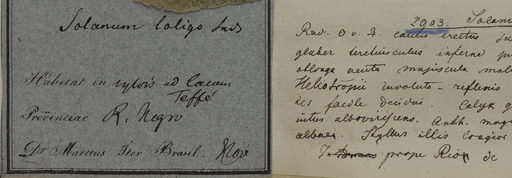 Solanum caligo
Habitat in sylvis ad lacum
Teffé
Provinciae R. Negro
Dr. Martius Iter Brasil. Nov
2903. Solan
Rad. 0 v. 2. caulis erectus
glaber teretiusculus inferne
oblonga acuta majuscula
Heliotropii involuto - reflexis
facile decidui. Calyx
intus albovirescens. Anth. mag
albae. Stylus illis longior
prope Rio de